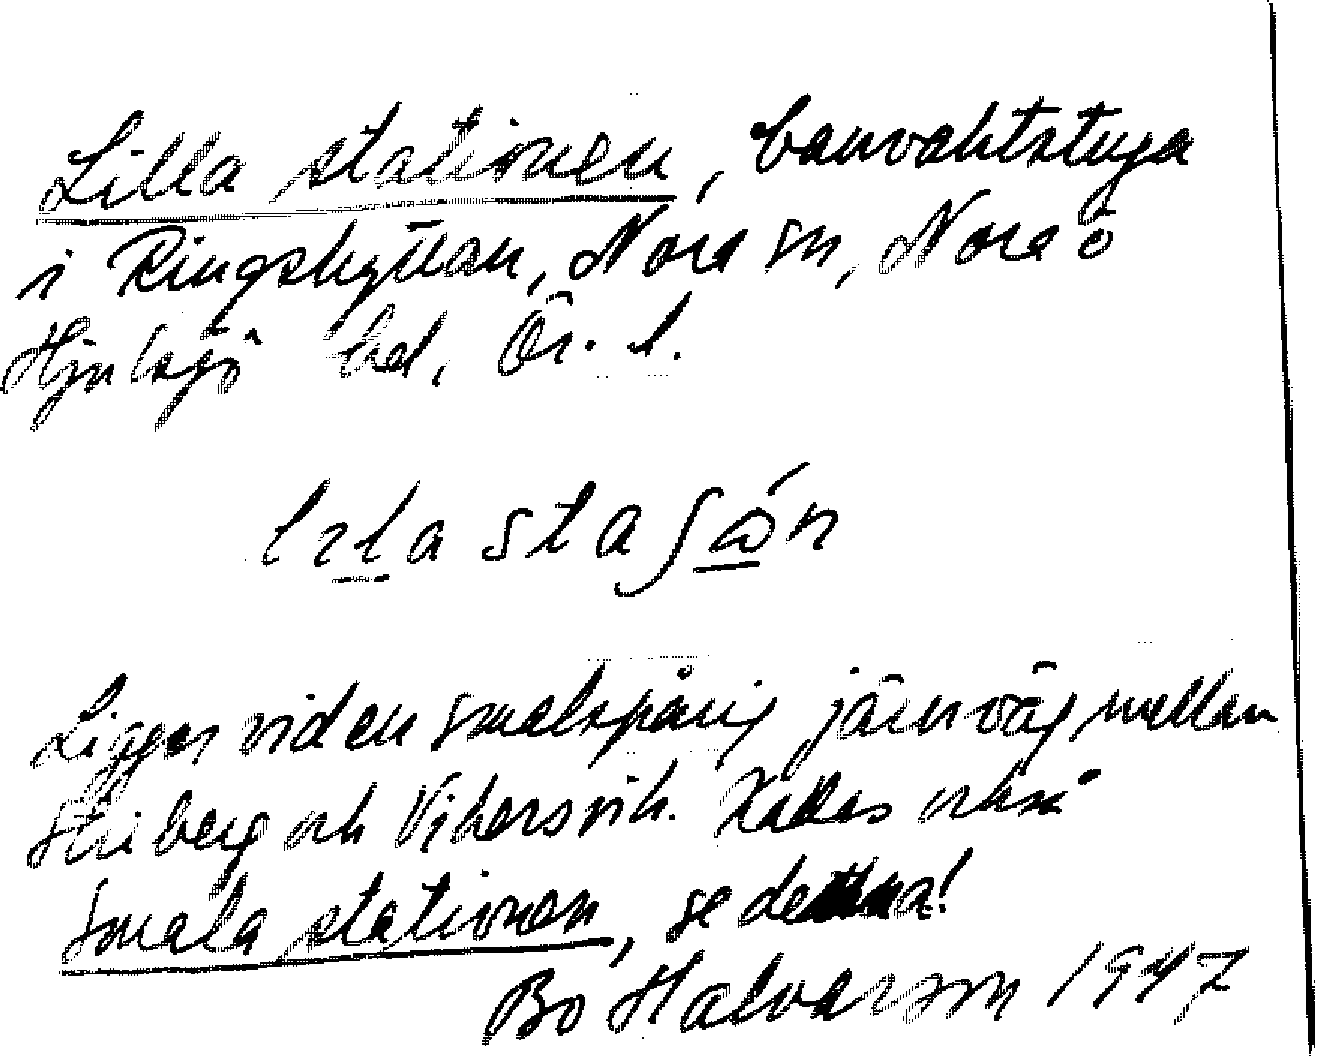 Lilla stationen, banvaktstuga
i Ringshyttan, Nora sn, Nora o
Hjulsjö hd, Ör. l.
Ligger vid en smalspårig järnväg mellan
Striberg och Vikersvik. Kallas också
Smala stationen, se denna!
Bo Halvarson 1947